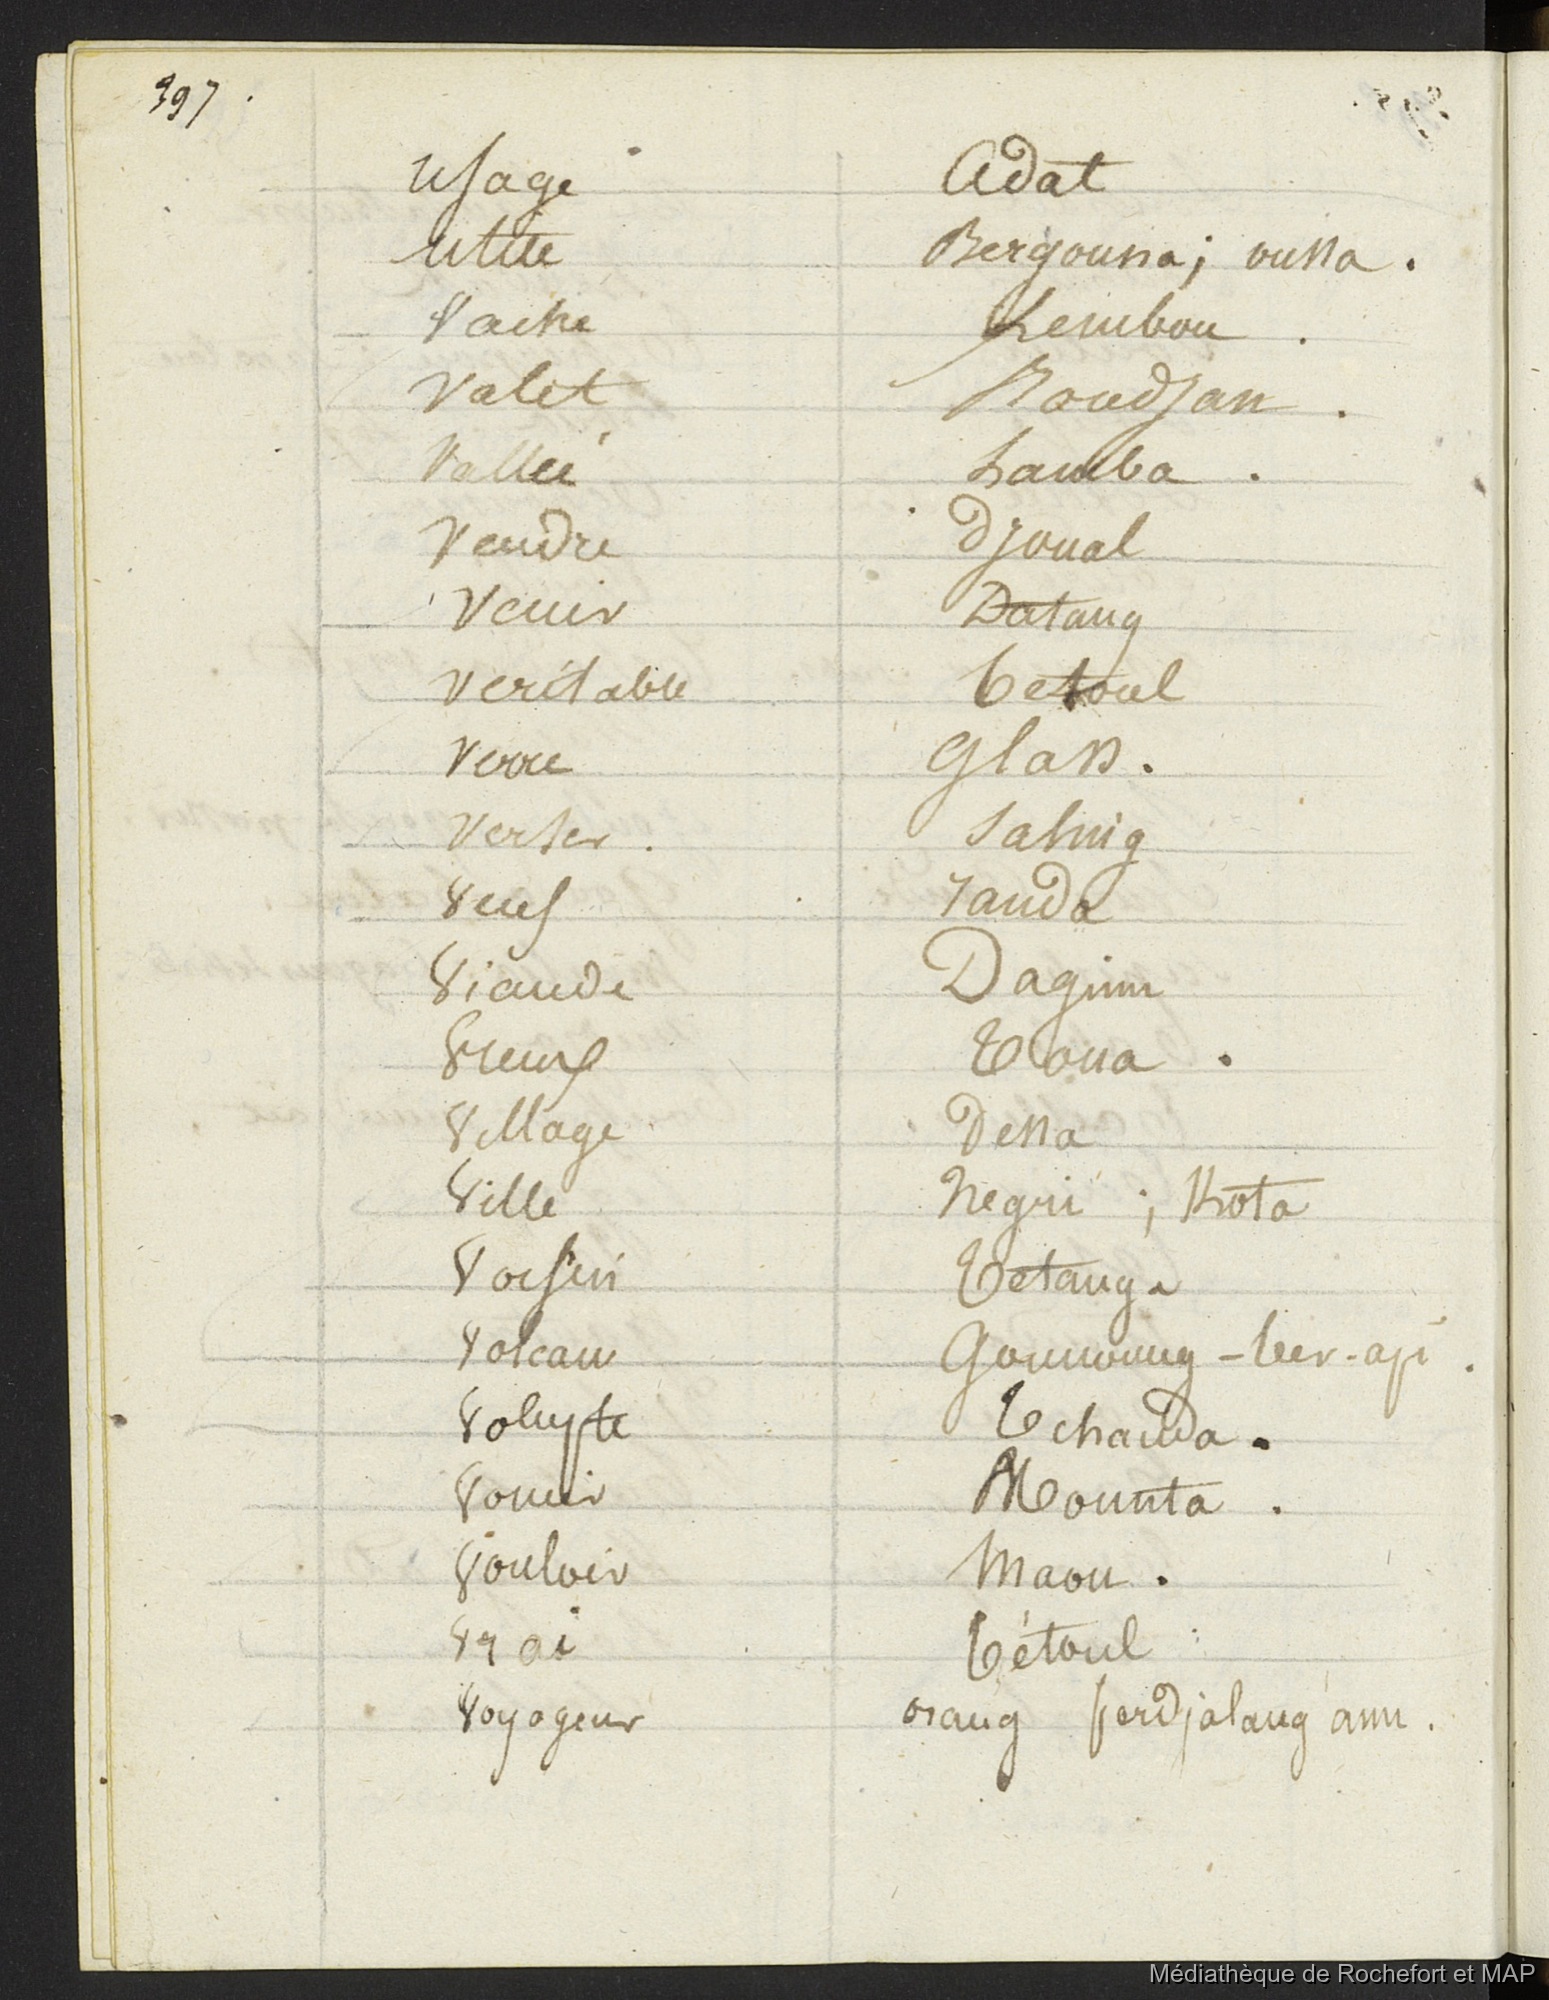 397.
Usage Adat
Utile Bergouna; oussa.
Vache Lembou.
Valet Roudjan.
Vallée Lamba.
Vendre Djoual
Venir Datang
Veritable betoul
Verre Glass.
Verser. Salnig
Veuf Janda
Viande Daginn
Vieux Toua.
Village Dessa
Ville Negri; Kota
Voisin Tetanga
Volcan Gounoung-ber-api.
Volupté Tchanda.
Vomir Mounta.
Vouloir Maou.
Vrai Bétoul
Voyageur orang perdjalang ann.
Médiathèque de Rochefort et MAP